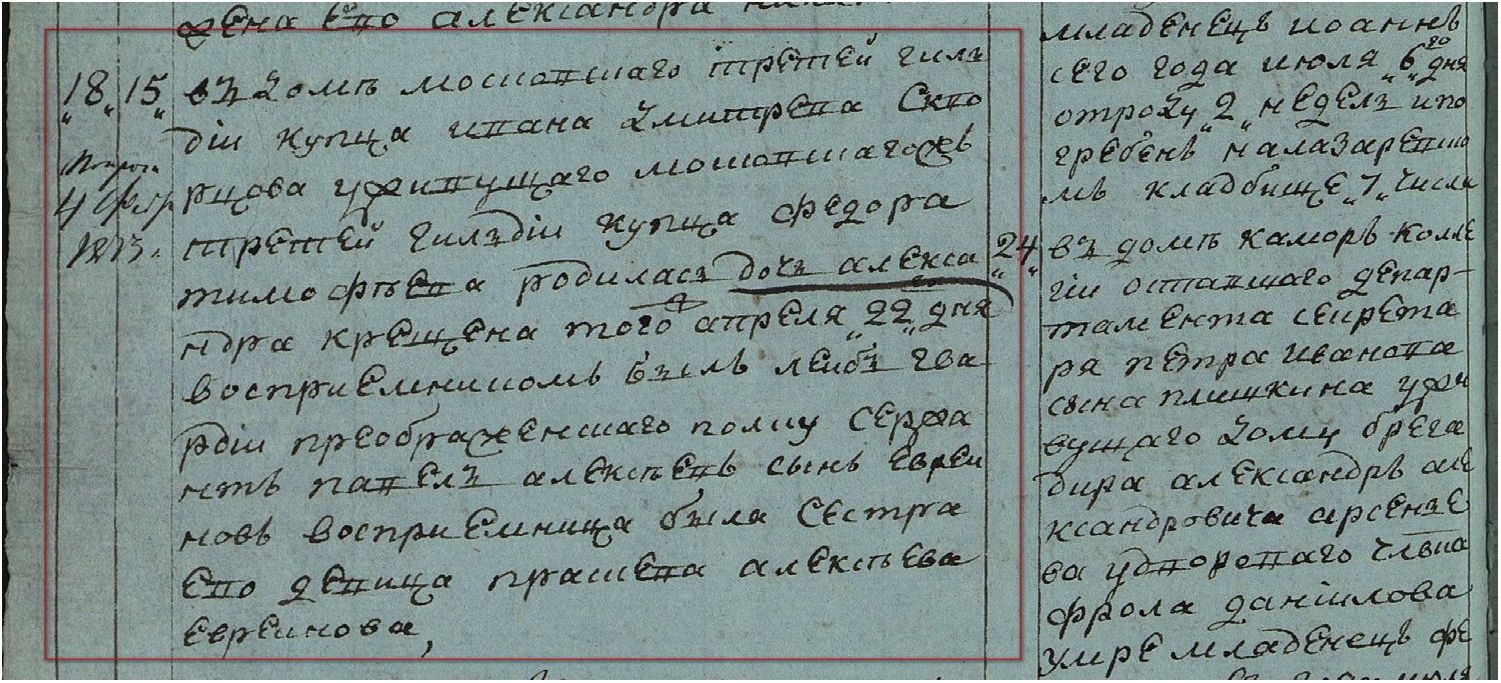 жена его александра
18 15 въ домѣ московшаго третей гилъ
діи купца ивана дмитрева скво
рцова уживущаго московшагожъ
третей гилъдіи купца федора
тимофѣева родиласъ дочъ алекса
ндра крещена того апреля 22 дня
4 февр
1873.
восприемникомъ былъ лейбъ гва
рдіи преображенскаго полку сержа
нтъ павелъ алексѣевъ сынъ евреи
новъ восприемница была сестра
ево девица прасковя алексѣева
евреинова,
младенецъ иоаннъ
сего года июля 6го дня
отроду 2 неделъ и по
гребенъ на лазаревско
мъ кладбище 7 числа
24 въ домѣ каморъ колле
гіи оставшаго депар-
тамента секрета
ря петра иванова
сына плишкина ужи
вущаго дому брега
дира александръ але
ксандровича арсенъе
ва удворового члвка
фрола данилова
умре младенецъ фе